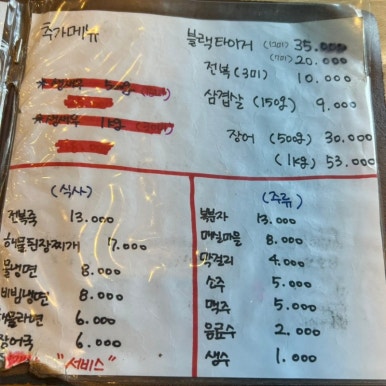 추가메뉴
블랙타이거 (12미) 35.000
(7미) 20.000
전복 (3미) 10.000
삼겹살 (150g) 9.000
장어 (500g) 30.000
(1kg) 53.000
(식사)
전복죽 13.000
해물된장찌개 7.000
물냉면 8.000
비빔냉면 8.000
해물라면 6.000
장어국 6.000
"서비스"
(주류)
복분자 13.000
매실마을 8.000
막걸리 4.000
소주 5.000
맥주 5.000
음료수 2.000
생수 1.000